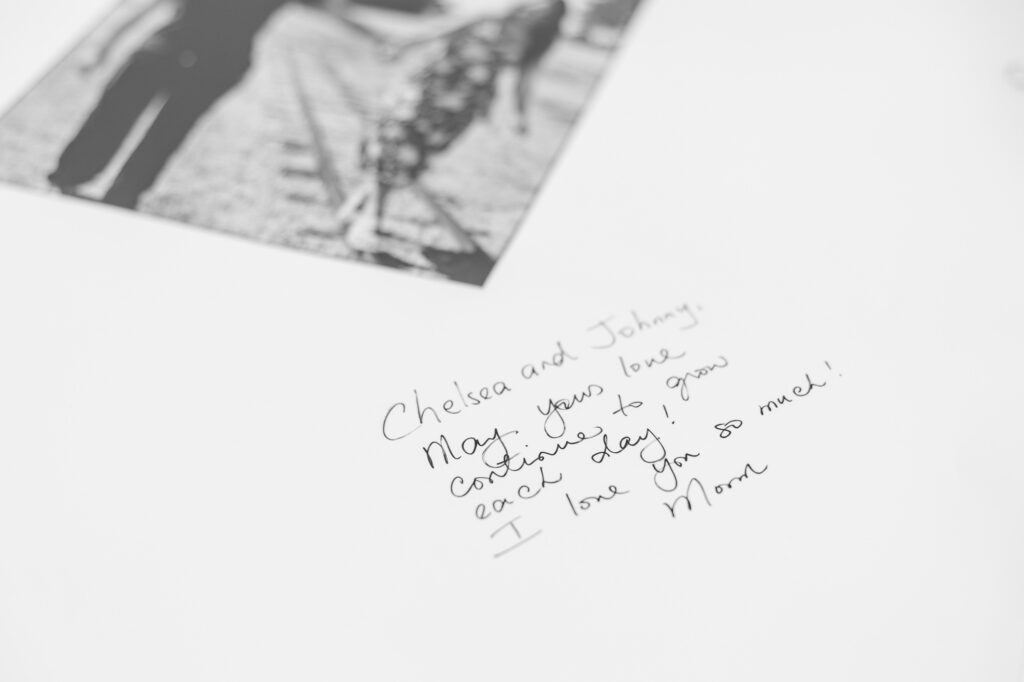 Chelsea and Johnny,
May your love
continue to grow
each day!
I love you so much!
Mom